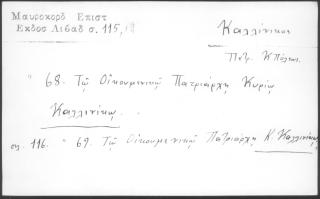 Μαυροκορδ Επιστ
Εκδος Λιβαδ σ. 115,
Καλλίνικος
Πατρ. Κπόλεως
" 68. Τῷ Οἰκουμενικῷ Πατριάρχῃ Κυρίῳ
Καλλινίκῳ.
σελ. 116. " 69. Τῷ Οἰκουμενικῷ Πατριάρχῃ Κ. Καλλινίκῳ